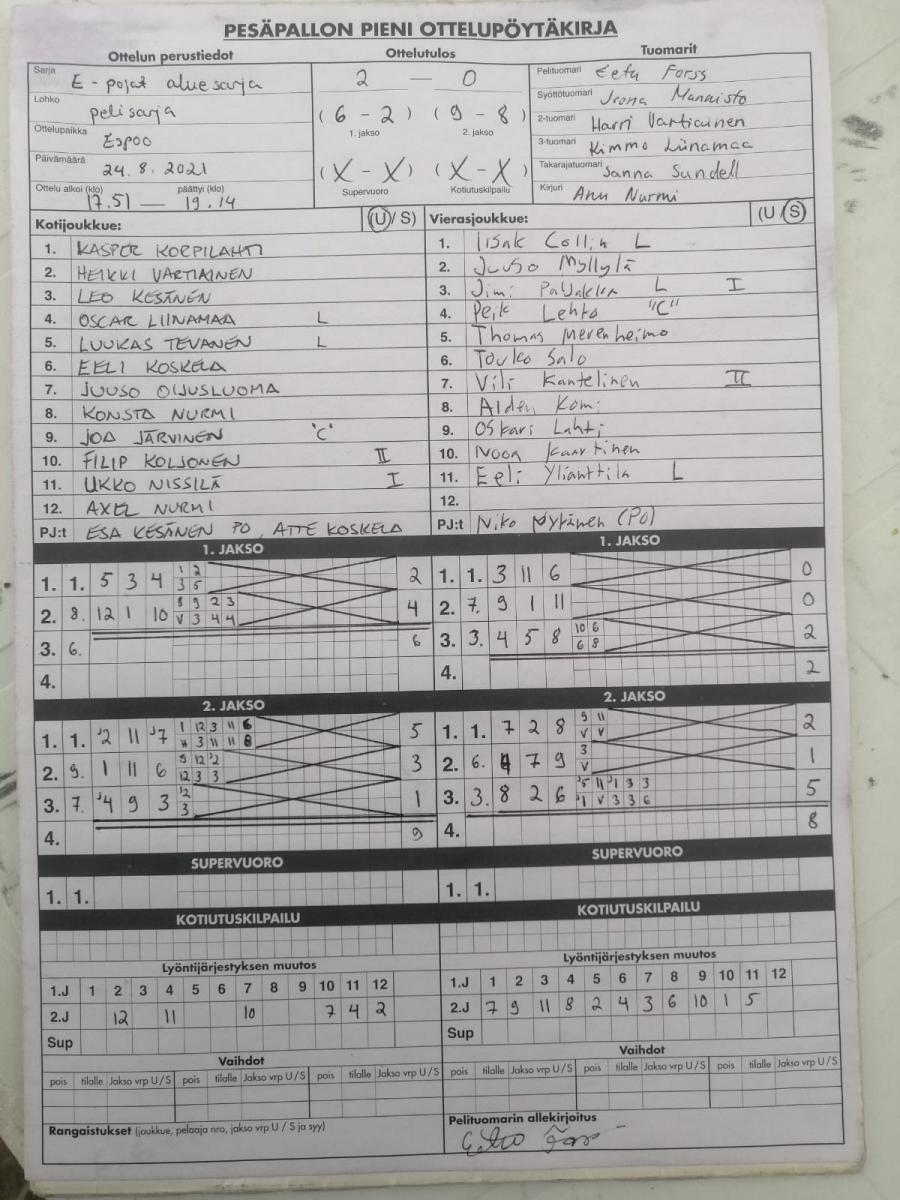 PESÄPALLON PIENI OTTELUPÖYTÄKIRJA
Ottelun perustiedot
Ottelutulos
Tuomarit
Sarja E - pojat aluesarja
Lohko pelisarja
Ottelupaikka Espoo
Päivämäärä 24.8.2021
Ottelu alkoi (klo) päättyi (klo)
17.51 — 19.14
2 — 0
(6 - 2) (9 - 8)
1. jakso 2. jakso
(X - X) (X - X)
Supervuoro Kotiutuskilpailu
Pelituomari Eetu Forss
Syöttötuomari Jrona Mannisto
2-tuomari Harri Vartiainen
3-tuomari Kimmo Liinamaa
Takarajatuomari Sanna Sundell
Kirjuri Anu Nurmi
Kotijoukkue: (U/S)
1. KASPER KORPILAHTI
2. HEIKKI VARTIAINEN
3. LEO KESÄNEN
4. OSCAR LIINAMAA L
5. LUUKAS TEVANEN L
6. EELI KOSKELA
7. JUUSO OIJUSLUOMA
8. KONSTA NURMI
9. JOA JÄRVINEN "C"
10. FILIP KOLJONEN II
11. UKKO NISSILÄ I
12. AXEL NURMI
PJ:t ESA KESÄNEN PO, ATTE KOSKELA
Vierasjoukkue: (U/S)
1. Iisak Collin L
2. Juuso Myllylä
3. Jimi L I
4. Peik Lehto "C"
5. Thomas Merenheimo
6. Touko Salo
7. Vili Kantelinen II
8. Aiden Komi
9. Oskari Lahti
10. Nooa Kaartinen
11. Eeli Ylianttila L
12.
PJ:t Niko Nytänen (PO)
1. JAKSO
1. 1. 5 3 4 1 2 2
3 5
2. 8. 12 1 10 8 9 2 3 4
V 3 4 4
3. 6. 6
4.
1. JAKSO
1. 1. 3 11 6 0
2. 7. 9 1 11 0
3. 3. 4 5 8 10 6 2
6 8
4. 2
2. JAKSO
1. 1. 2 11 7 1 12 3 11 6 5
11 3 11 11 8
2. 9. 1 11 6 9 12 2 3
12 3 3
3. 7. 4 9 3 2 1
3
4. 9
2. JAKSO
1. 1. 7 2 8 9 11 2
V V
2. 6. 4 7 9 3 1
V
3. 3. 8 2 6 5 11 1 3 3 5
1 V 3 3 6
4. 8
SUPERVUORO
1. 1.
SUPERVUORO
1. 1.
KOTIUTUSKILPAILU
KOTIUTUSKILPAILU
Lyöntijärjestyksen muutos
1.J 1 2 3 4 5 6 7 8 9 10 11 12
2.J 12 11 10 7 4 2
Sup
Lyöntijärjestyksen muutos
1.J 1 2 3 4 5 6 7 8 9 10 11 12
2.J 7 9 11 8 2 4 3 6 10 1 5
Sup
Vaihdot
pois tilalle Jakso vrp U/S pois tilalle Jakso vrp U/S pois tilalle Jakso vrp U/S
Vaihdot
pois tilalle Jakso vrp U/S pois tilalle Jakso vrp U/S pois tilalle Jakso vrp U/S
Rangaistukset (joukkue, pelaaja nro, jakso vrp U / S ja syy)
Pelituomarin allekirjoitus